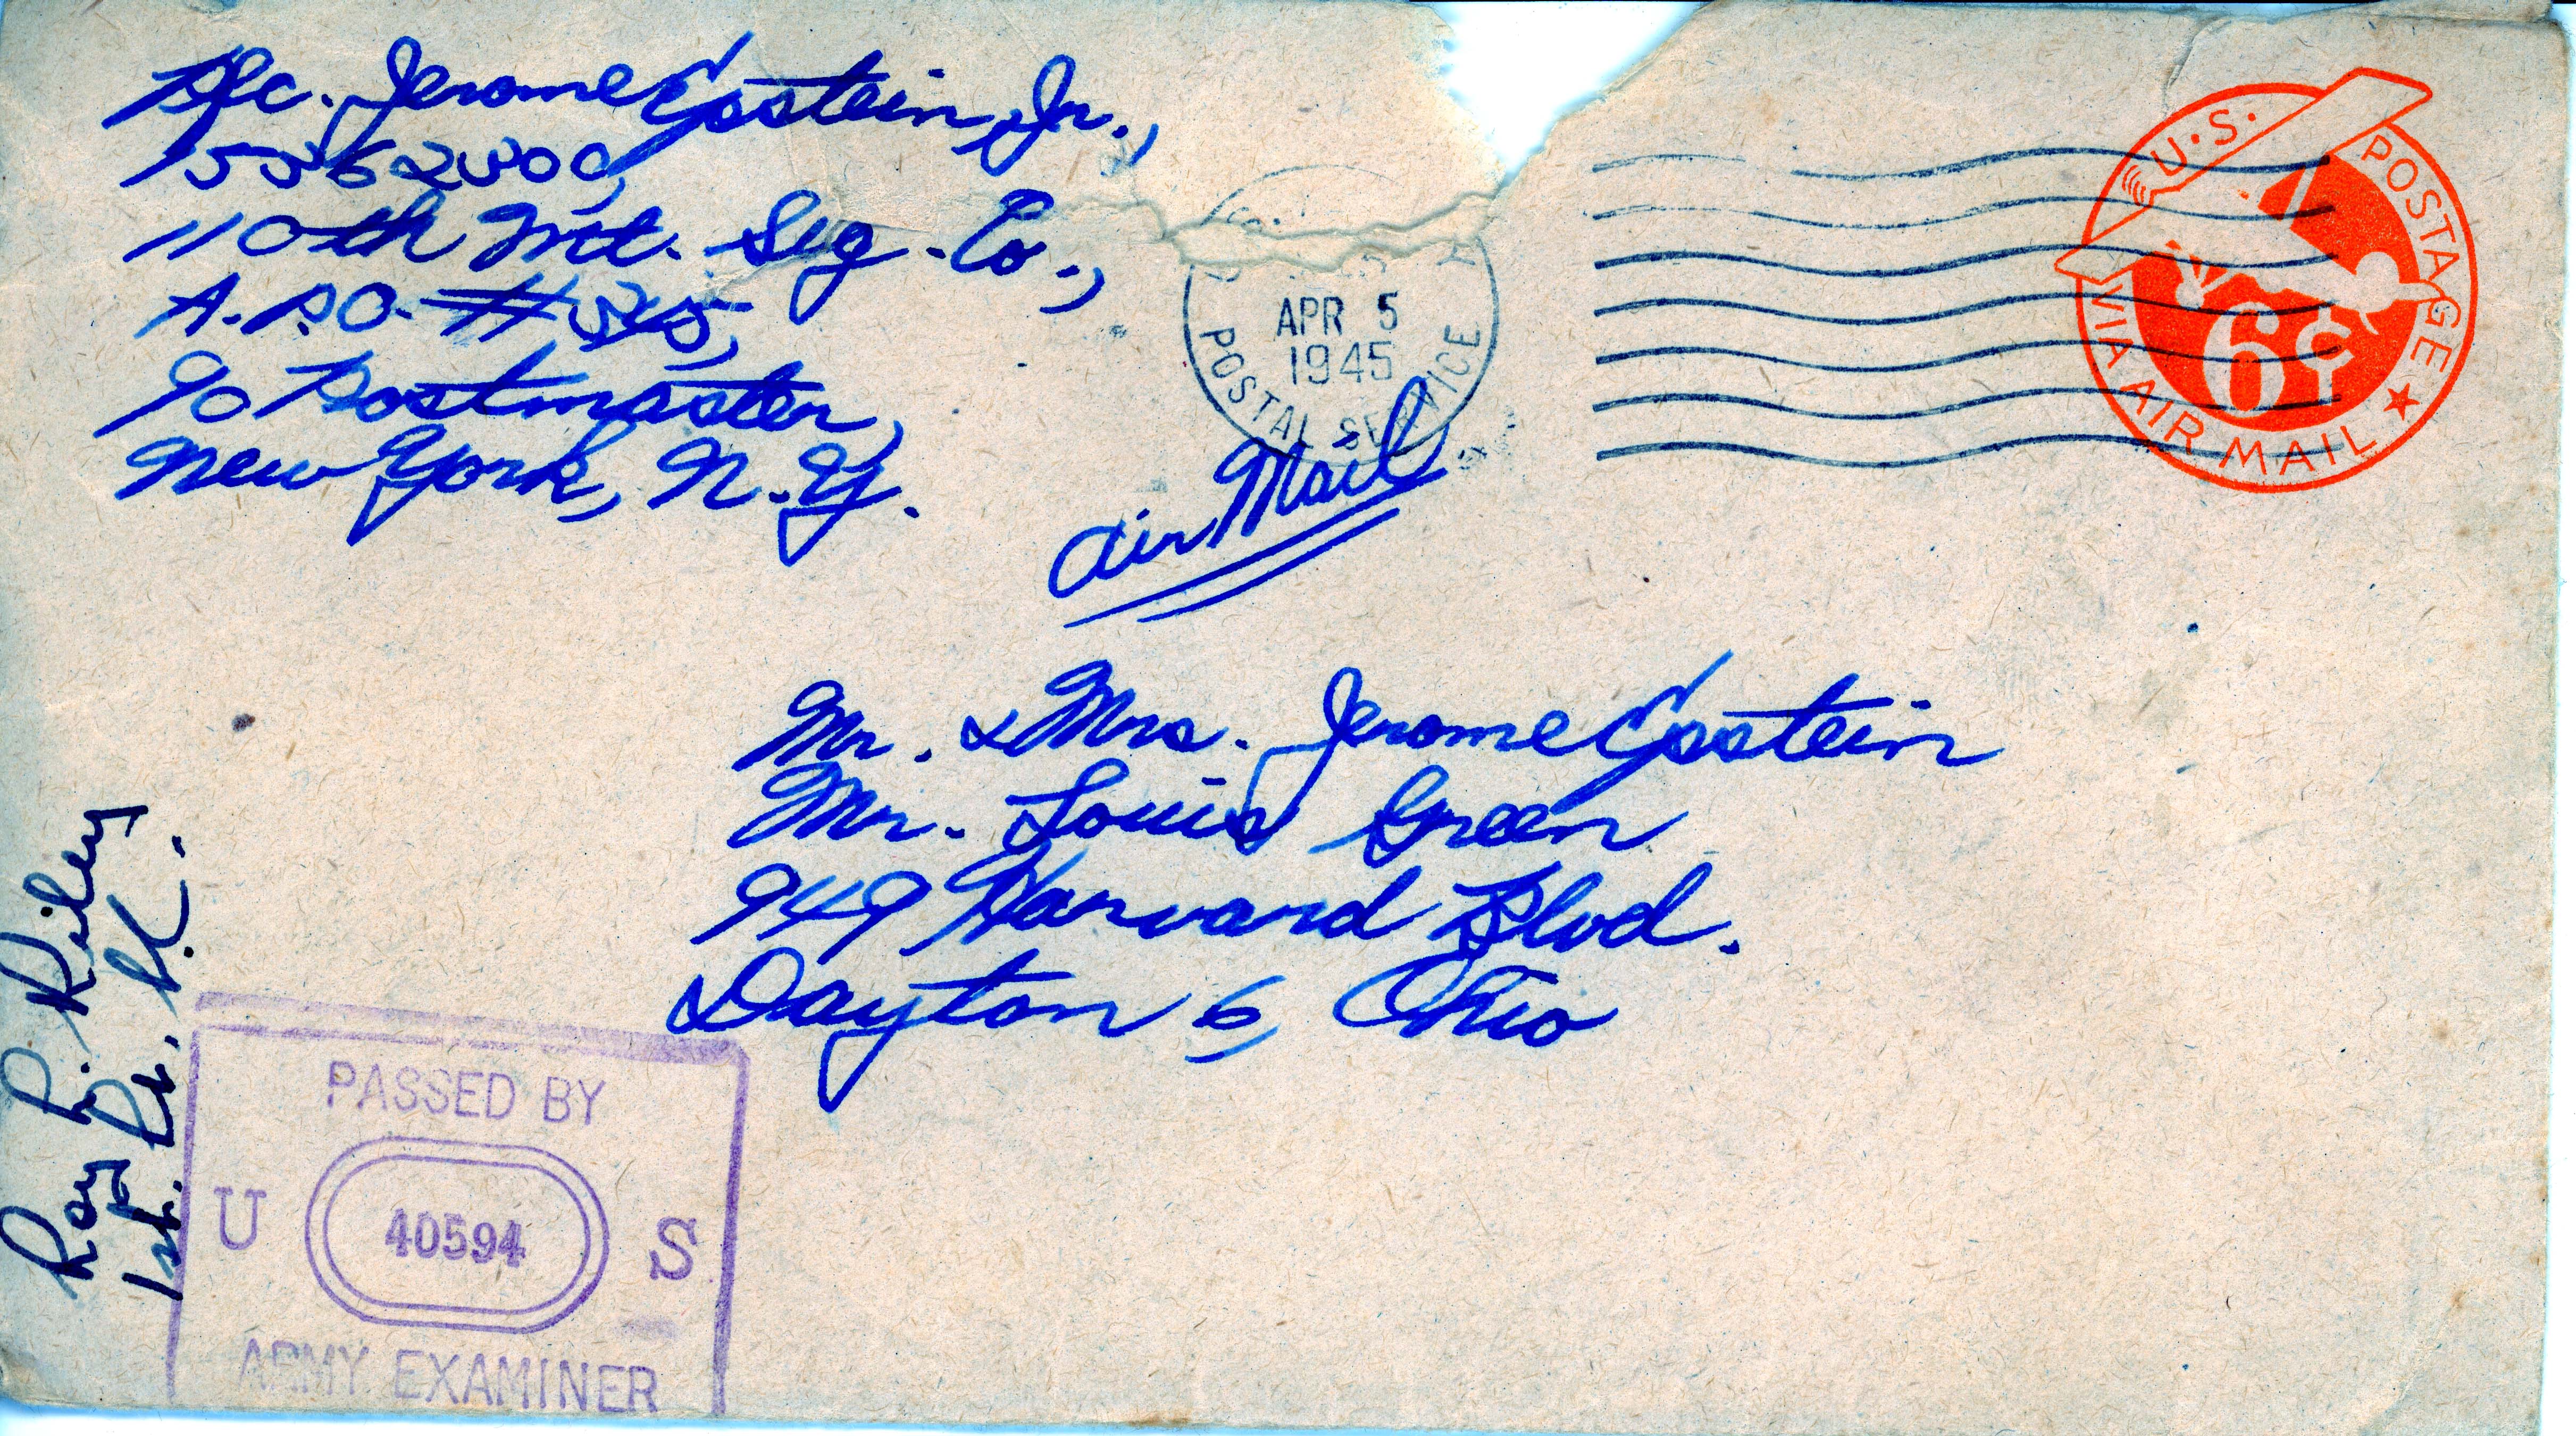 Pfc. Jerome Epstein, Jr.,
110th Mt. Sig. Co.,
A.P.O. #345,
c/o Postmaster,
New York, N.Y.
APR 5
1945
POSTAL SERVICE
U.S. POSTAGE
6¢
VIA AIR MAIL
Air Mail
Mr. & Mrs. Jerome Epstein
Mr. Louis Green
949 Harvard Blvd.
Dayton 6, Ohio
Roy R. Riley
1st. Lt.
PASSED BY
U 40594 S
ARMY EXAMINER